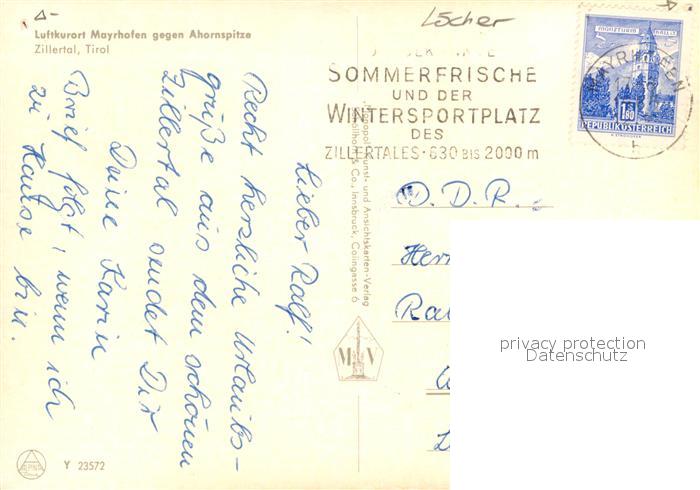 Löscher
Luftkurort Mayrhofen gegen Ahornspitze
Zillertal, Tirol
Lieber Ralf!
Recht herzliche Urlaubs-
grüße aus dem schönen
Zillertal sendet Dir
Deine Karin
Brief folgt, wenn ich
zu Hause bin.
SOMMERFRISCHE
UND DER
WINTERSPORTPLATZ
DES
ZILLERTALES · 630 BIS 2000 m
MÜNZTURM HALL I. T.
1.80
REPUBLIK ÖSTERREICH
MAYRHOFEN
b
Kunst- und Ansichtskarten-Verlag
& Co., Innsbruck, Colingasse 6
M V
D. D. R.
privacy protection
Datenschutz
Y 23572